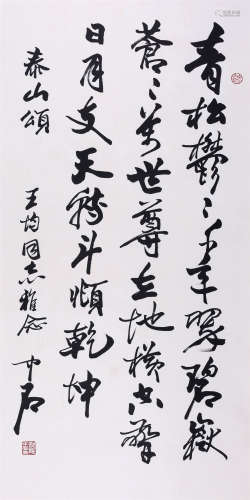 青松鬱〻千年翠碧嶽
蒼〻萬世尊立地橫空擎
日月支天轉斗順乾坤
泰山頌
王均同志雅念
中石